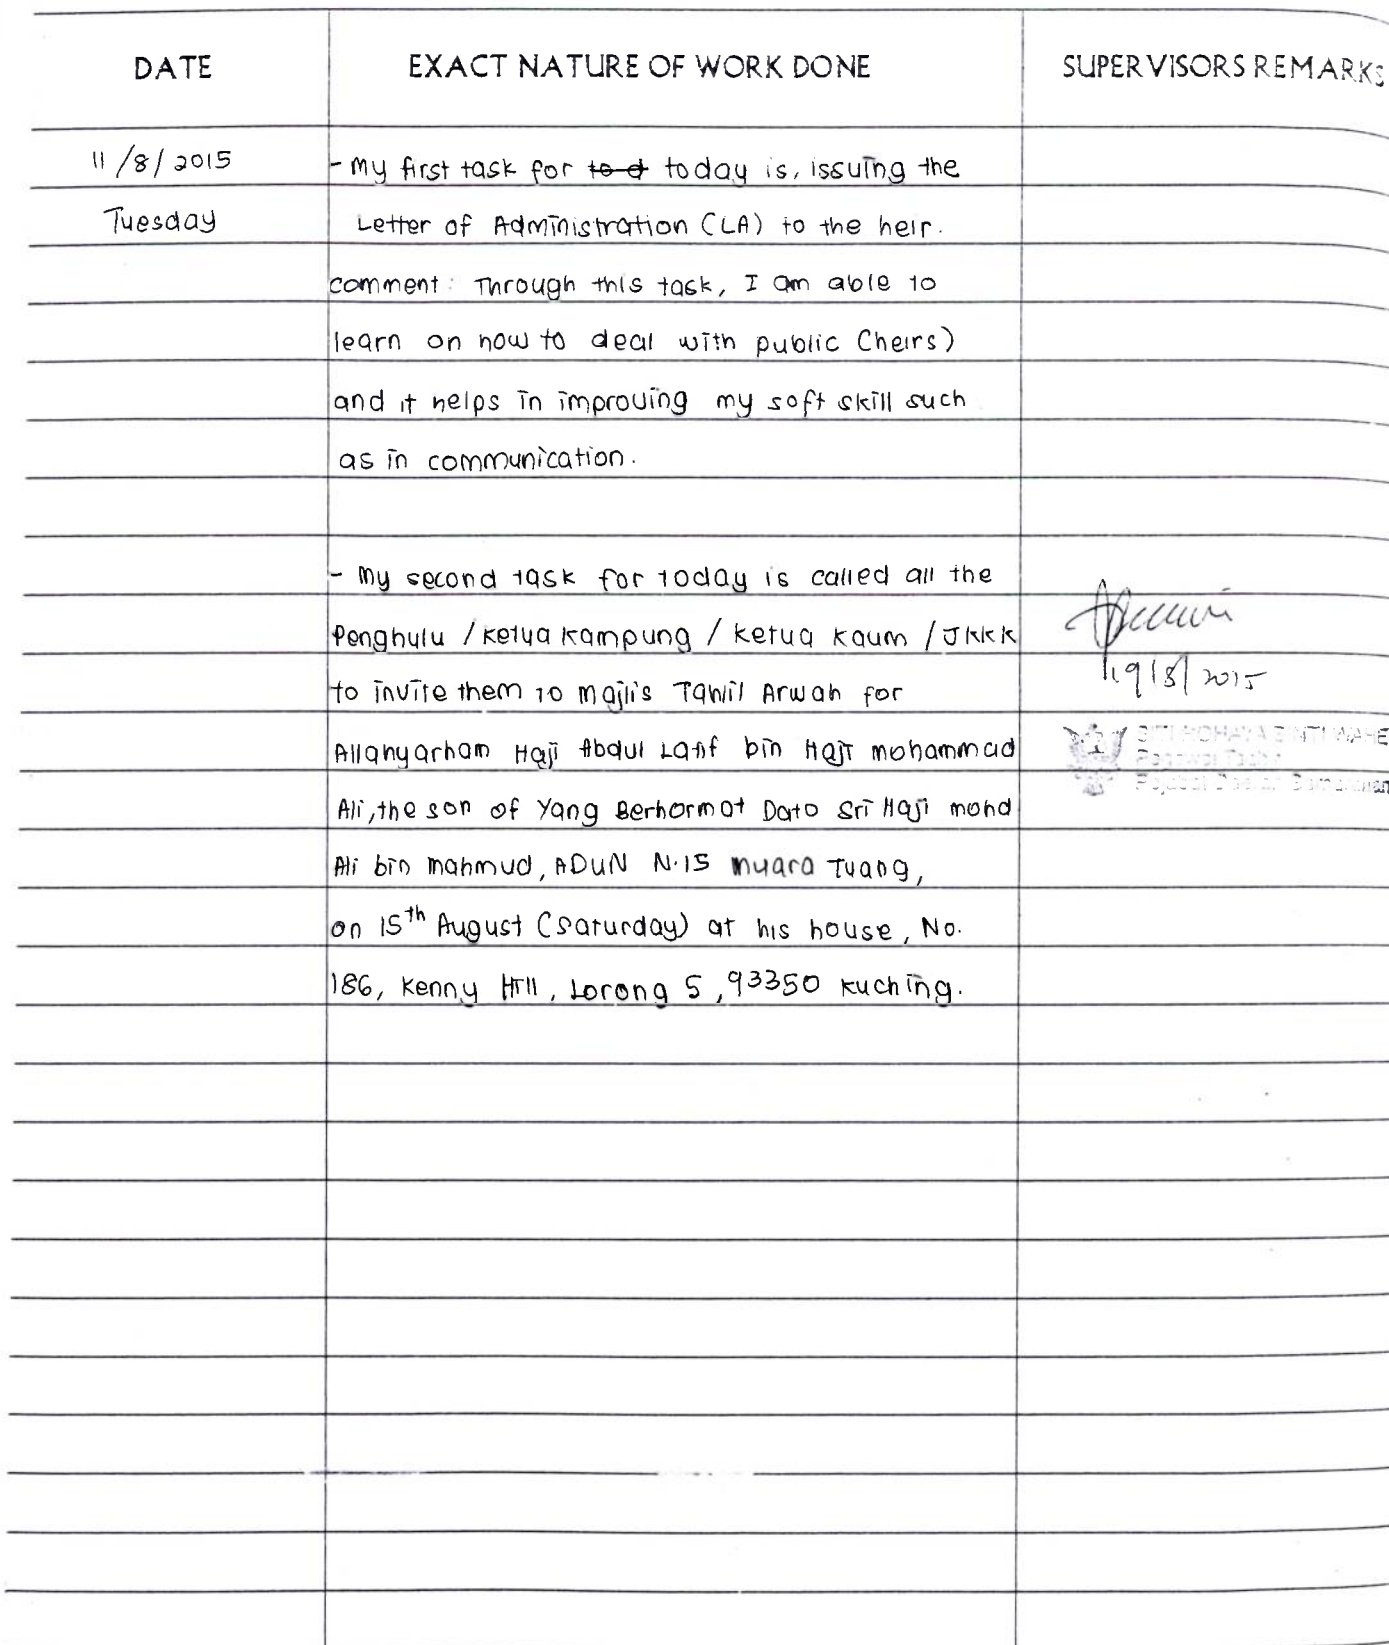 DATE EXACT NATURE OF WORK DONE SUPERVISORS REMARKS
11/8/2015 - My first task for to d today is, issuing the
Tuesday Letter of Administration (LA) to the heir.
comment: Through this task, I am able to
learn on how to deal with public (heirs)
and it helps in improving my soft skill such
as in communication.
- My second task for today is called all the
Penghulu / Ketua Kampung / Ketua Kaum / JKKK
to invite them to Majlis Tahlil Arwah for
19/8/2015
Allahyarham Haji Abdul Latif bin Haji Mohammad
SITI ROHAYA BINTI WAHE
Ali, the son of Yang Berhormat Dato Sri Haji Mohd
Ali bin Mahmud, ADUN N.15 Muara Tuang,
on 15th August (Saturday) at his house, No.
186, Kenny Hill, Lorong 5, 93350 Kuching.